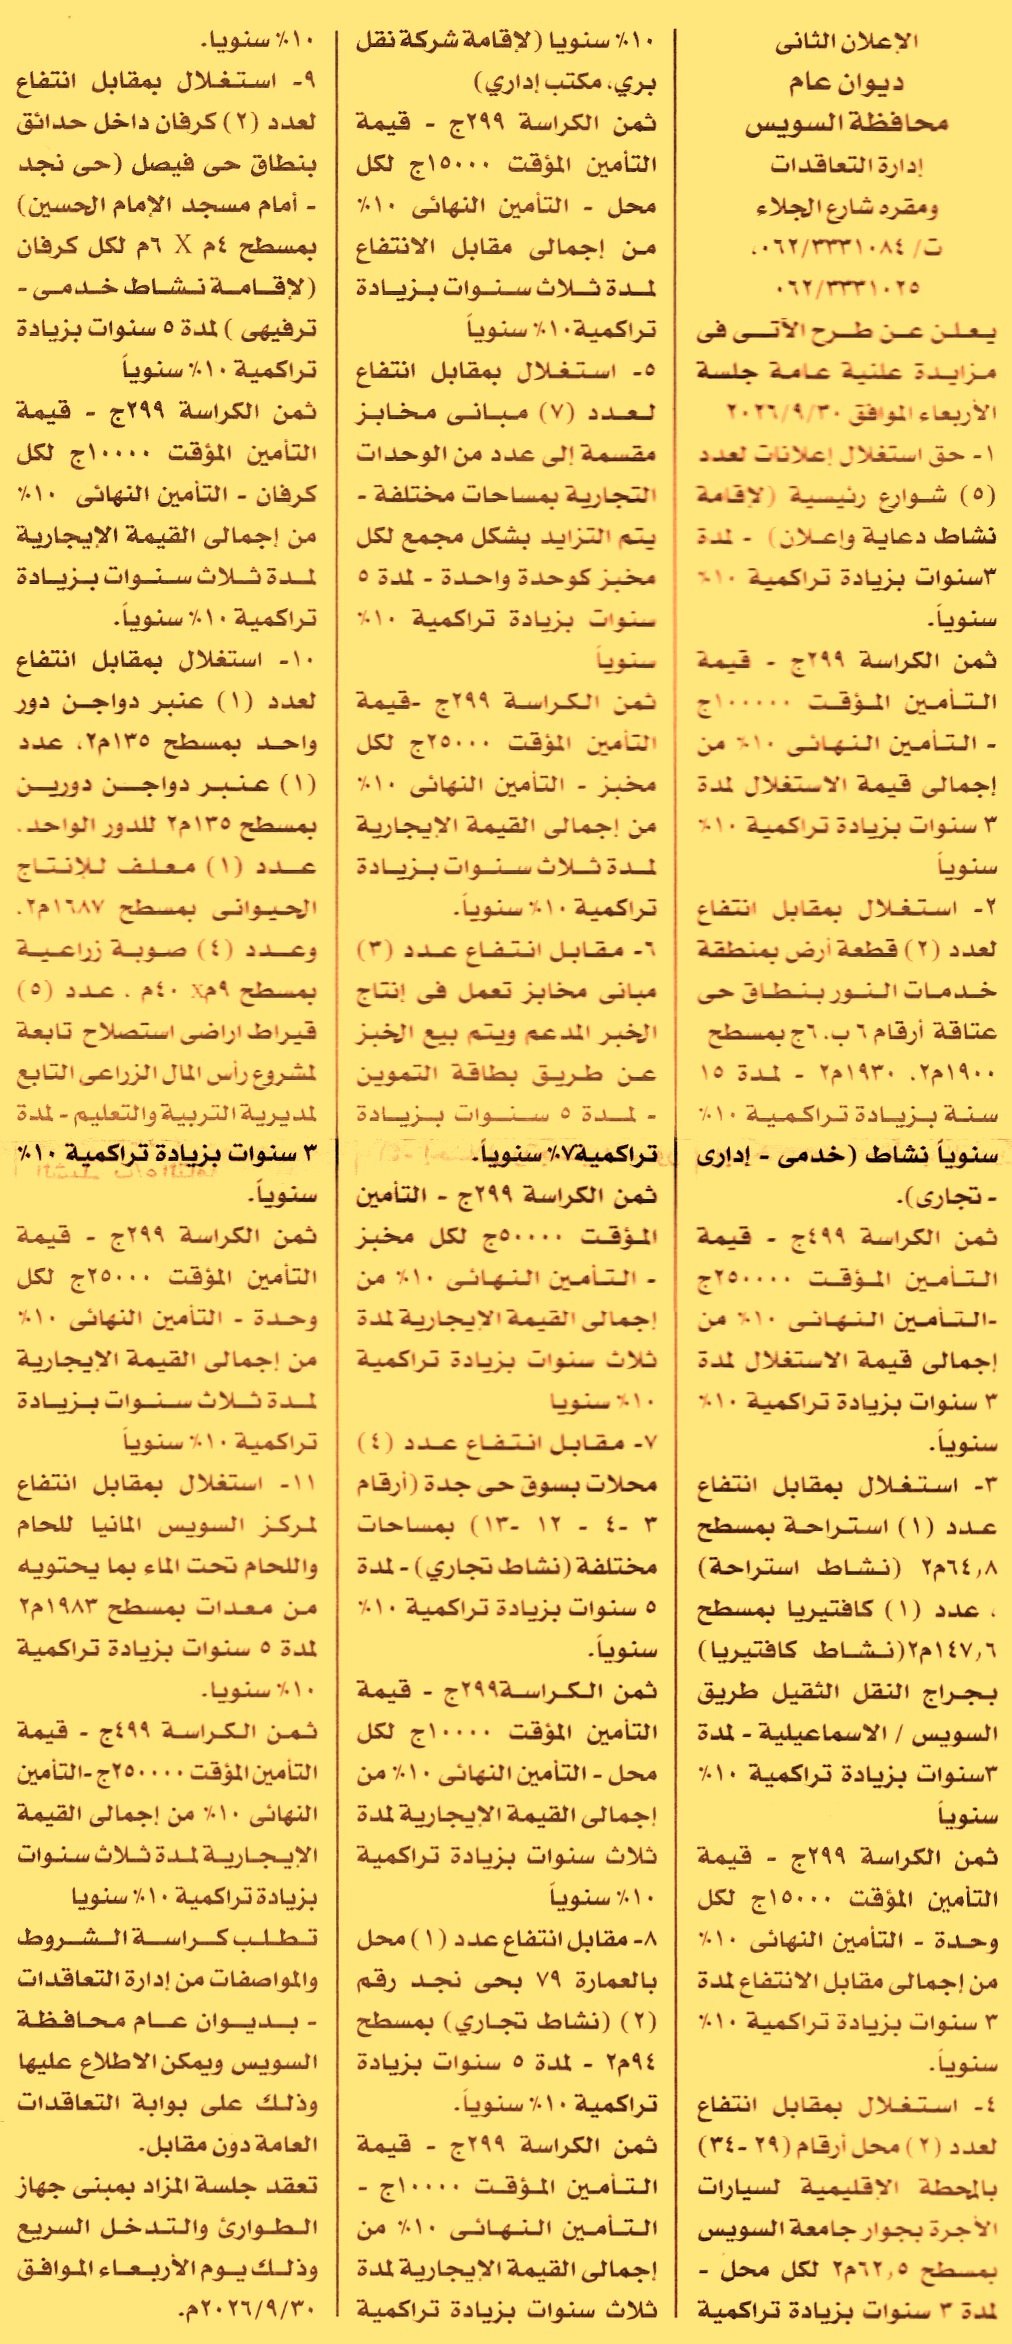 الإعلان الثانى
ديوان عام
محافظة السويس
إدارة التعاقدات
ومقره شارع الجلاء
ت/ ٠٦٢/٣٣٣١٠٨٤،
٠٦٢/٣٣٣١٠٢٥
يعلن عن طرح الآتى فى
مزايدة علنية عامة جلسة
الأربعاء الموافق ٢٠٢٦/٩/٣٠
١- حق استغلال إعلانات لعدد
(٥) شوارع رئيسية (لإقامة
نشاط دعاية وإعلان) - لمدة
٣سنوات بزيادة تراكمية ١٠٪
سنوياً.
ثمن الكراسة ٢٩٩ج - قيمة
التأمين المؤقت ١٠٠٠٠٠ج
- التأمين النهائى ١٠٪ من
إجمالى قيمة الاستغلال لمدة
٣ سنوات بزيادة تراكمية ١٠٪
سنوياً
٢- استغلال بمقابل انتفاع
لعدد (٢) قطعة أرض بمنطقة
خدمات النور بنطاق حى
عتاقة أرقام ٦ ب، ٦ج بمسطح
١٩٠٠م٢، ١٩٣٠م٢ - لمدة ١٥
سنة بزيادة تراكمية ١٠٪
سنوياً نشاط (خدمى - إدارى
- تجارى).
ثمن الكراسة ٤٩٩ج - قيمة
التأمين المؤقت ٢٥٠٠٠٠ج
-التأمين النهائى ١٠٪ من
إجمالى قيمة الاستغلال لمدة
٣ سنوات بزيادة تراكمية ١٠٪
سنوياً.
٣- استغلال بمقابل انتفاع
عدد (١) استراحة بمسطح
٦٤,٨م٢ (نشاط استراحة)
، عدد (١) كافتيريا بمسطح
١٤٧,٦م٢(نشاط كافتيريا)
بجراج النقل الثقيل طريق
السويس / الاسماعيلية - لمدة
٣سنوات بزيادة تراكمية ١٠٪
سنوياً
ثمن الكراسة ٢٩٩ج - قيمة
التأمين المؤقت ١٥٠٠٠ج لكل
وحدة - التأمين النهائى ١٠٪
من إجمالى مقابل الانتفاع لمدة
٣ سنوات بزيادة تراكمية ١٠٪
سنوياً.
٤- استغلال بمقابل انتفاع
لعدد (٢) محل أرقام (٢٩ -٣٤)
بالمحطة الإقليمية لسيارات
الأجرة بجوار جامعة السويس
بمسطح ٦٢,٥م٢ لكل محل -
لمدة ٣ سنوات بزيادة تراكمية
١٠٪ سنويا (لإقامة شركة نقل
بري، مكتب إداري)
ثمن الكراسة ٢٩٩ج - قيمة
التأمين المؤقت ١٥٠٠٠ج لكل
محل - التأمين النهائى ١٠٪
من إجمالى مقابل الانتفاع
لمدة ثلاث سنوات بزيادة
تراكمية١٠٪ سنوياً
٥- استغلال بمقابل انتفاع
لعدد (٧) مبانى مخابز
مقسمة إلى عدد من الوحدات
التجارية بمساحات مختلفة -
يتم التزايد بشكل مجمع لكل
مخبز كوحدة واحدة - لمدة ٥
سنوات بزيادة تراكمية ١٠٪
سنوياً
ثمن الكراسة ٢٩٩ج -قيمة
التأمين المؤقت ٢٥٠٠٠ج لكل
مخبز - التأمين النهائى ١٠٪
من إجمالى القيمة الإيجارية
لمدة ثلاث سنوات بزيادة
تراكمية ١٠٪ سنوياً.
٦- مقابل انتفاع عدد (٣)
مبانى مخابز تعمل فى إنتاج
الخبر المدعم ويتم بيع الخبز
عن طريق بطاقة التموين
- لمدة ٥ سنوات بزيادة
تراكمية٧٪ سنوياً.
ثمن الكراسة ٢٩٩ج - التأمين
المؤقت ٥٠٠٠٠ج لكل مخبز
- التأمين النهائى ١٠٪ من
إجمالى القيمة الإيجارية لمدة
ثلاث سنوات بزيادة تراكمية
١٠٪ سنويا
٧- مقابل انتفاع عدد (٤)
محلات بسوق حى جدة (أرقام
٣ -٤ - ١٢ -١٣) بمساحات
مختلفة (نشاط تجاري) - لمدة
٥ سنوات بزيادة تراكمية ١٠٪
سنوياً.
ثمن الكراسة٢٩٩ج - قيمة
التأمين المؤقت ١٠٠٠٠ج لكل
محل - التأمين النهائى ١٠٪ من
إجمالى القيمة الإيجارية لمدة
ثلاث سنوات بزيادة تراكمية
١٠٪ سنوياً
٨- مقابل انتفاع عدد (١) محل
بالعمارة ٧٩ بحى نجد رقم
(٢) (نشاط تجاري) بمسطح
٩٤م٢ - لمدة ٥ سنوات بزيادة
تراكمية ١٠٪ سنوياً.
ثمن الكراسة ٢٩٩ج - قيمة
التأمين المؤقت ١٠٠٠٠ج -
التأمين النهائى ١٠٪ من
إجمالى القيمة الإيجارية لمدة
ثلاث سنوات بزيادة تراكمية
١٠٪ سنويا.
٩- استغلال بمقابل انتفاع
لعدد (٢) كرفان داخل حدائق
بنطاق حى فيصل (حى نجد
- أمام مسجد الإمام الحسين)
بمسطح ٤م X ٦م لكل كرفان
(لإقامة نشاط خدمى -
ترفيهى ) لمدة ٥ سنوات بزيادة
تراكمية ١٠٪ سنوياً
ثمن الكراسة ٢٩٩ج - قيمة
التأمين المؤقت ١٠٠٠٠ج لكل
كرفان - التأمين النهائى ١٠٪
من إجمالى القيمة الإيجارية
لمدة ثلاث سنوات بزيادة
تراكمية ١٠٪ سنوياً.
١٠- استغلال بمقابل انتفاع
لعدد (١) عنبر دواجن دور
واحد بمسطح ١٣٥م٢، عدد
(١) عنبر دواجن دورين
بمسطح ١٣٥م٢ للدور الواحد،
عدد (١) معلف للإنتاج
الحيوانى بمسطح ١٦٨٧م٢،
وعدد (٤) صوبة زراعية
بمسطح ٩مX ٤٠م ، عدد (٥)
قيراط اراضى استصلاح تابعة
لمشروع رأس المال الزراعى التابع
لمديرية التربية والتعليم - لمدة
٣ سنوات بزيادة تراكمية ١٠٪
سنوياً.
ثمن الكراسة ٢٩٩ج - قيمة
التأمين المؤقت ٢٥٠٠٠ج لكل
وحدة - التأمين النهائى ١٠٪
من إجمالى القيمة الإيجارية
لمدة ثلاث سنوات بزيادة
تراكمية ١٠٪ سنوياً
١١- استغلال بمقابل انتفاع
لمركز السويس المانيا للحام
واللحام تحت الماء بما يحتويه
من معدات بمسطح ١٩٨٣م٢
لمدة ٥ سنوات بزيادة تراكمية
١٠٪ سنويا.
ثمن الكراسة ٤٩٩ج - قيمة
التأمين المؤقت ٢٥٠٠٠٠ج -التأمين
النهائى ١٠٪ من إجمالى القيمة
الإيجارية لمدة ثلاث سنوات
بزيادة تراكمية ١٠٪ سنويا
تطلب كراسة الشروط
والمواصفات من إدارة التعاقدات
- بديوان عام محافظة
السويس ويمكن الاطلاع عليها
وذلك على بوابة التعاقدات
العامة دون مقابل.
تعقد جلسة المزاد بمبنى جهاز
الطوارئ والتدخل السريع
وذلك يوم الأربعاء الموافق
٢٠٢٦/٩/٣٠م.